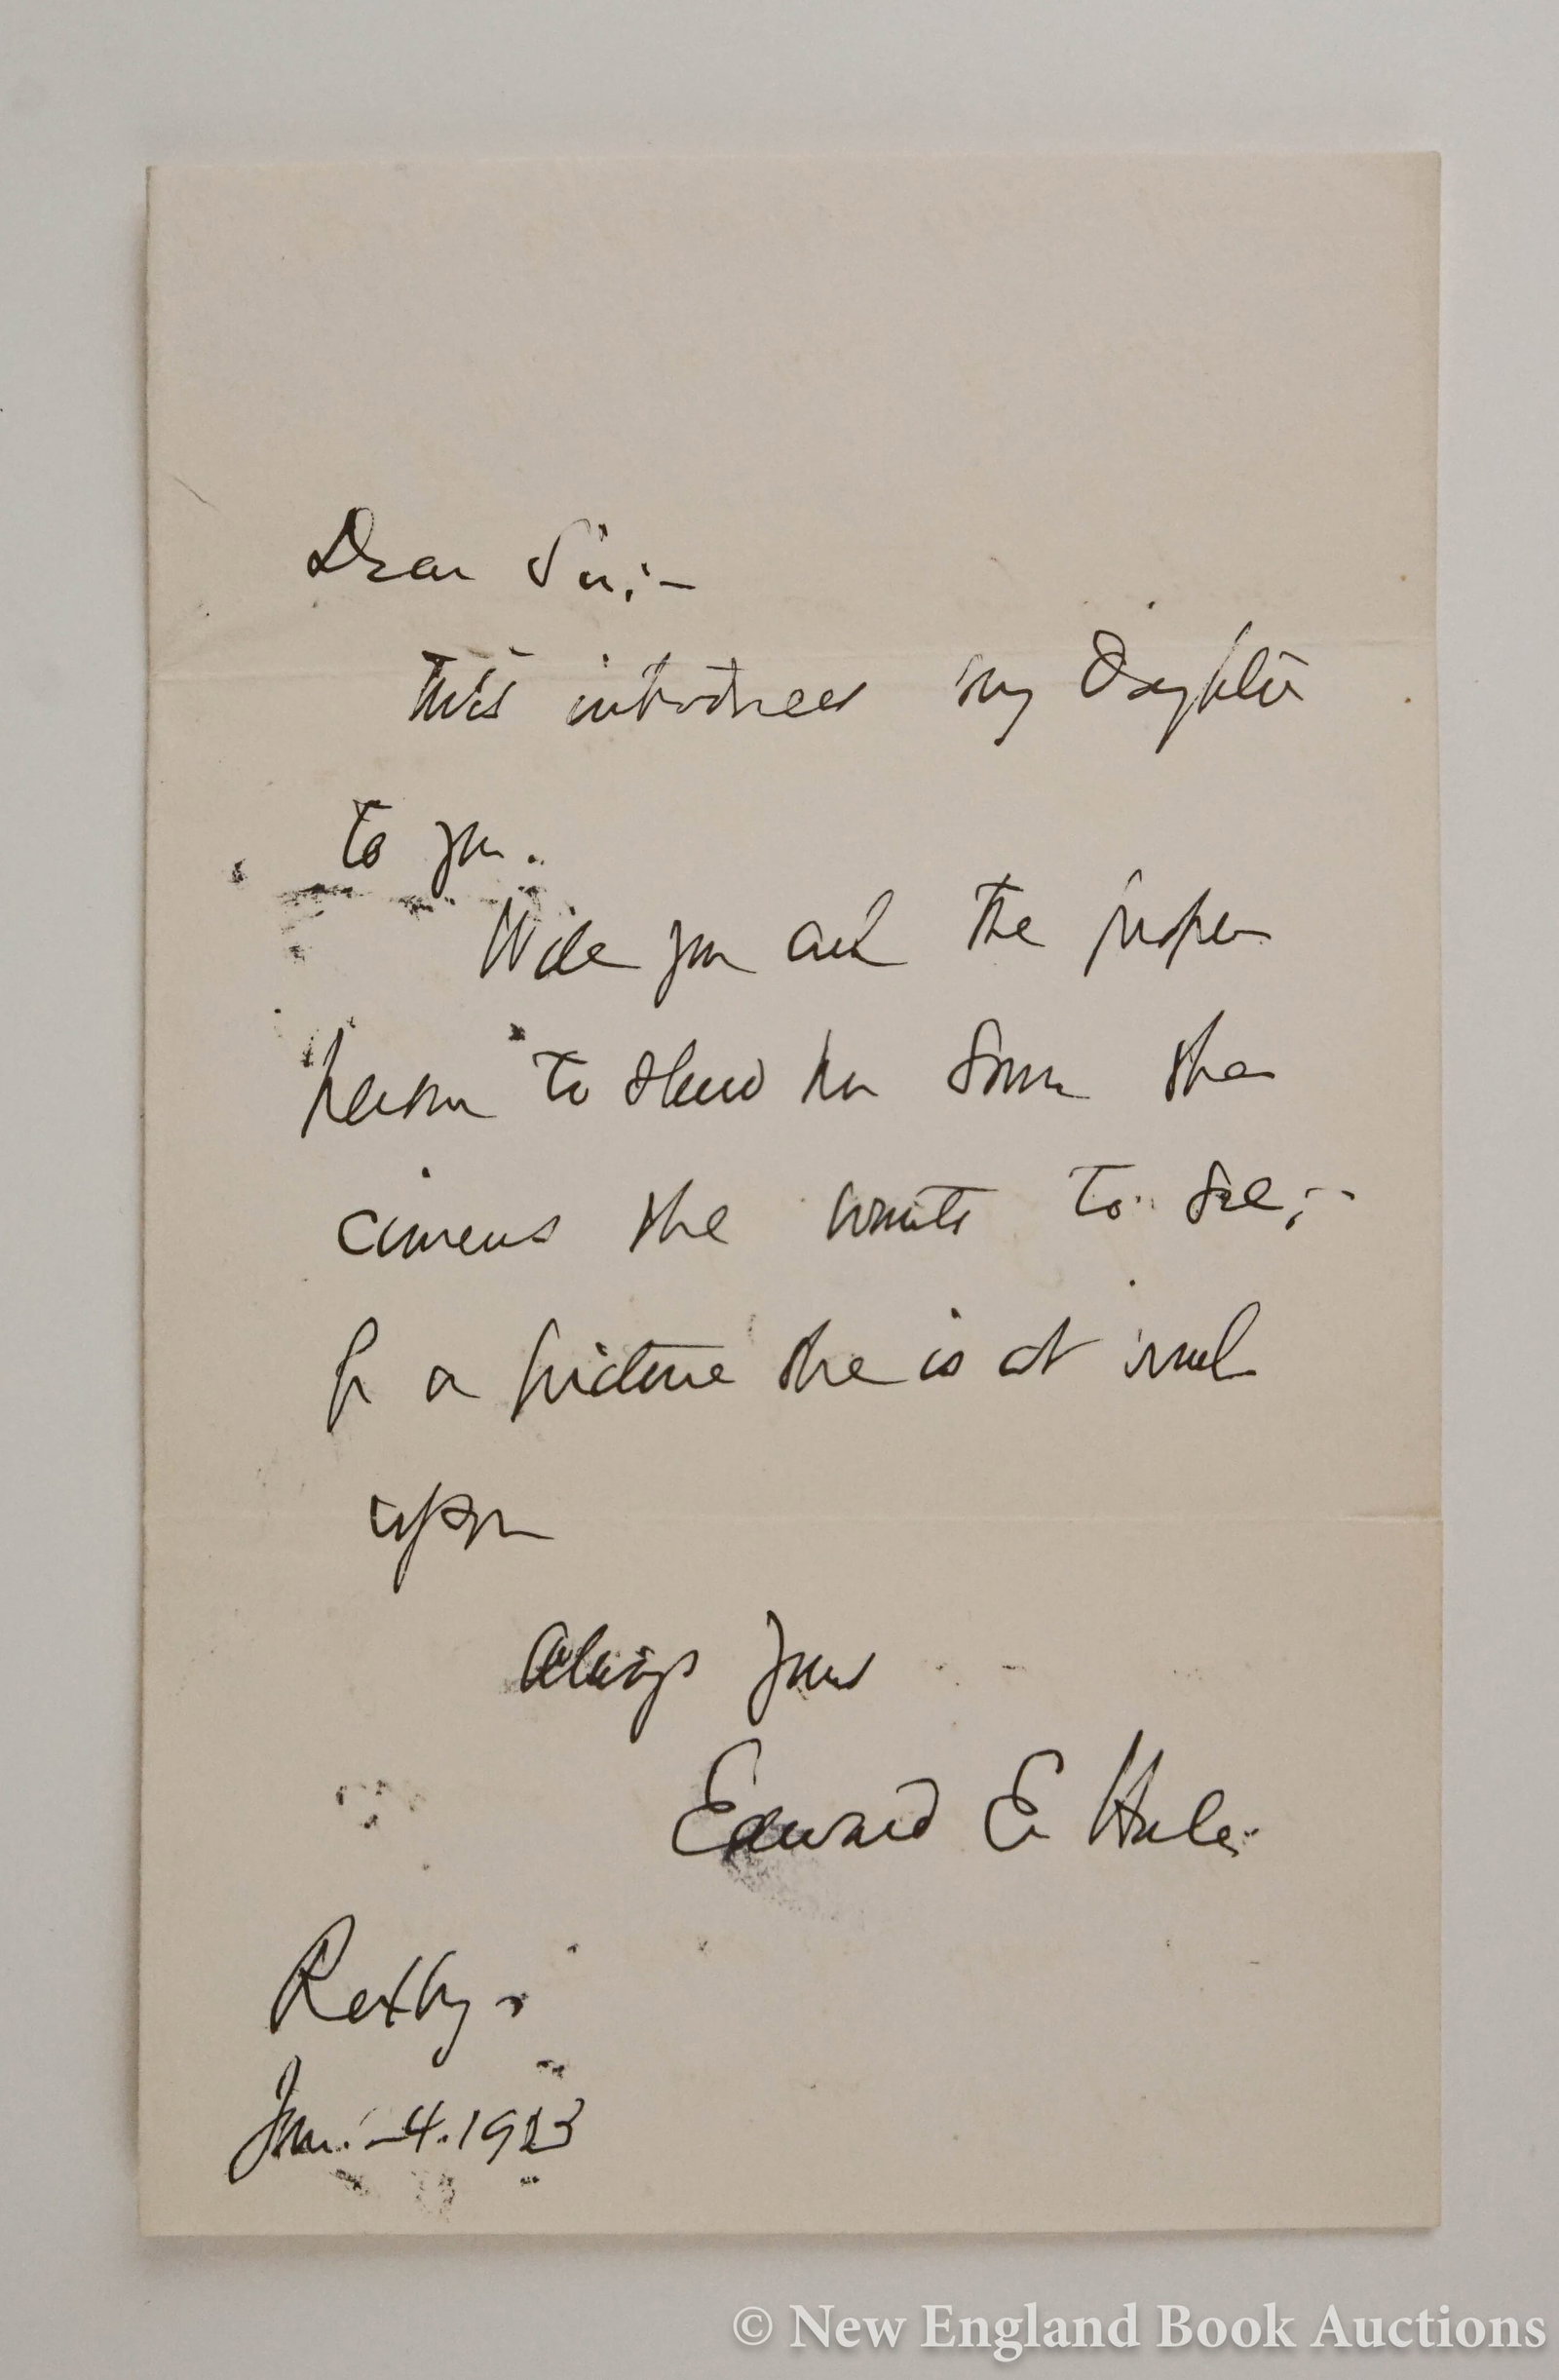 Dear Sir;-
This introduces my Daughter
to you.
Will you ask the proper
person to show her some spe
cimens she wants to see;-
for a picture she is at work
upon
Always yours
Edward E Hale
Roxby
Jan. 4. 1903
© New England Book Auctions